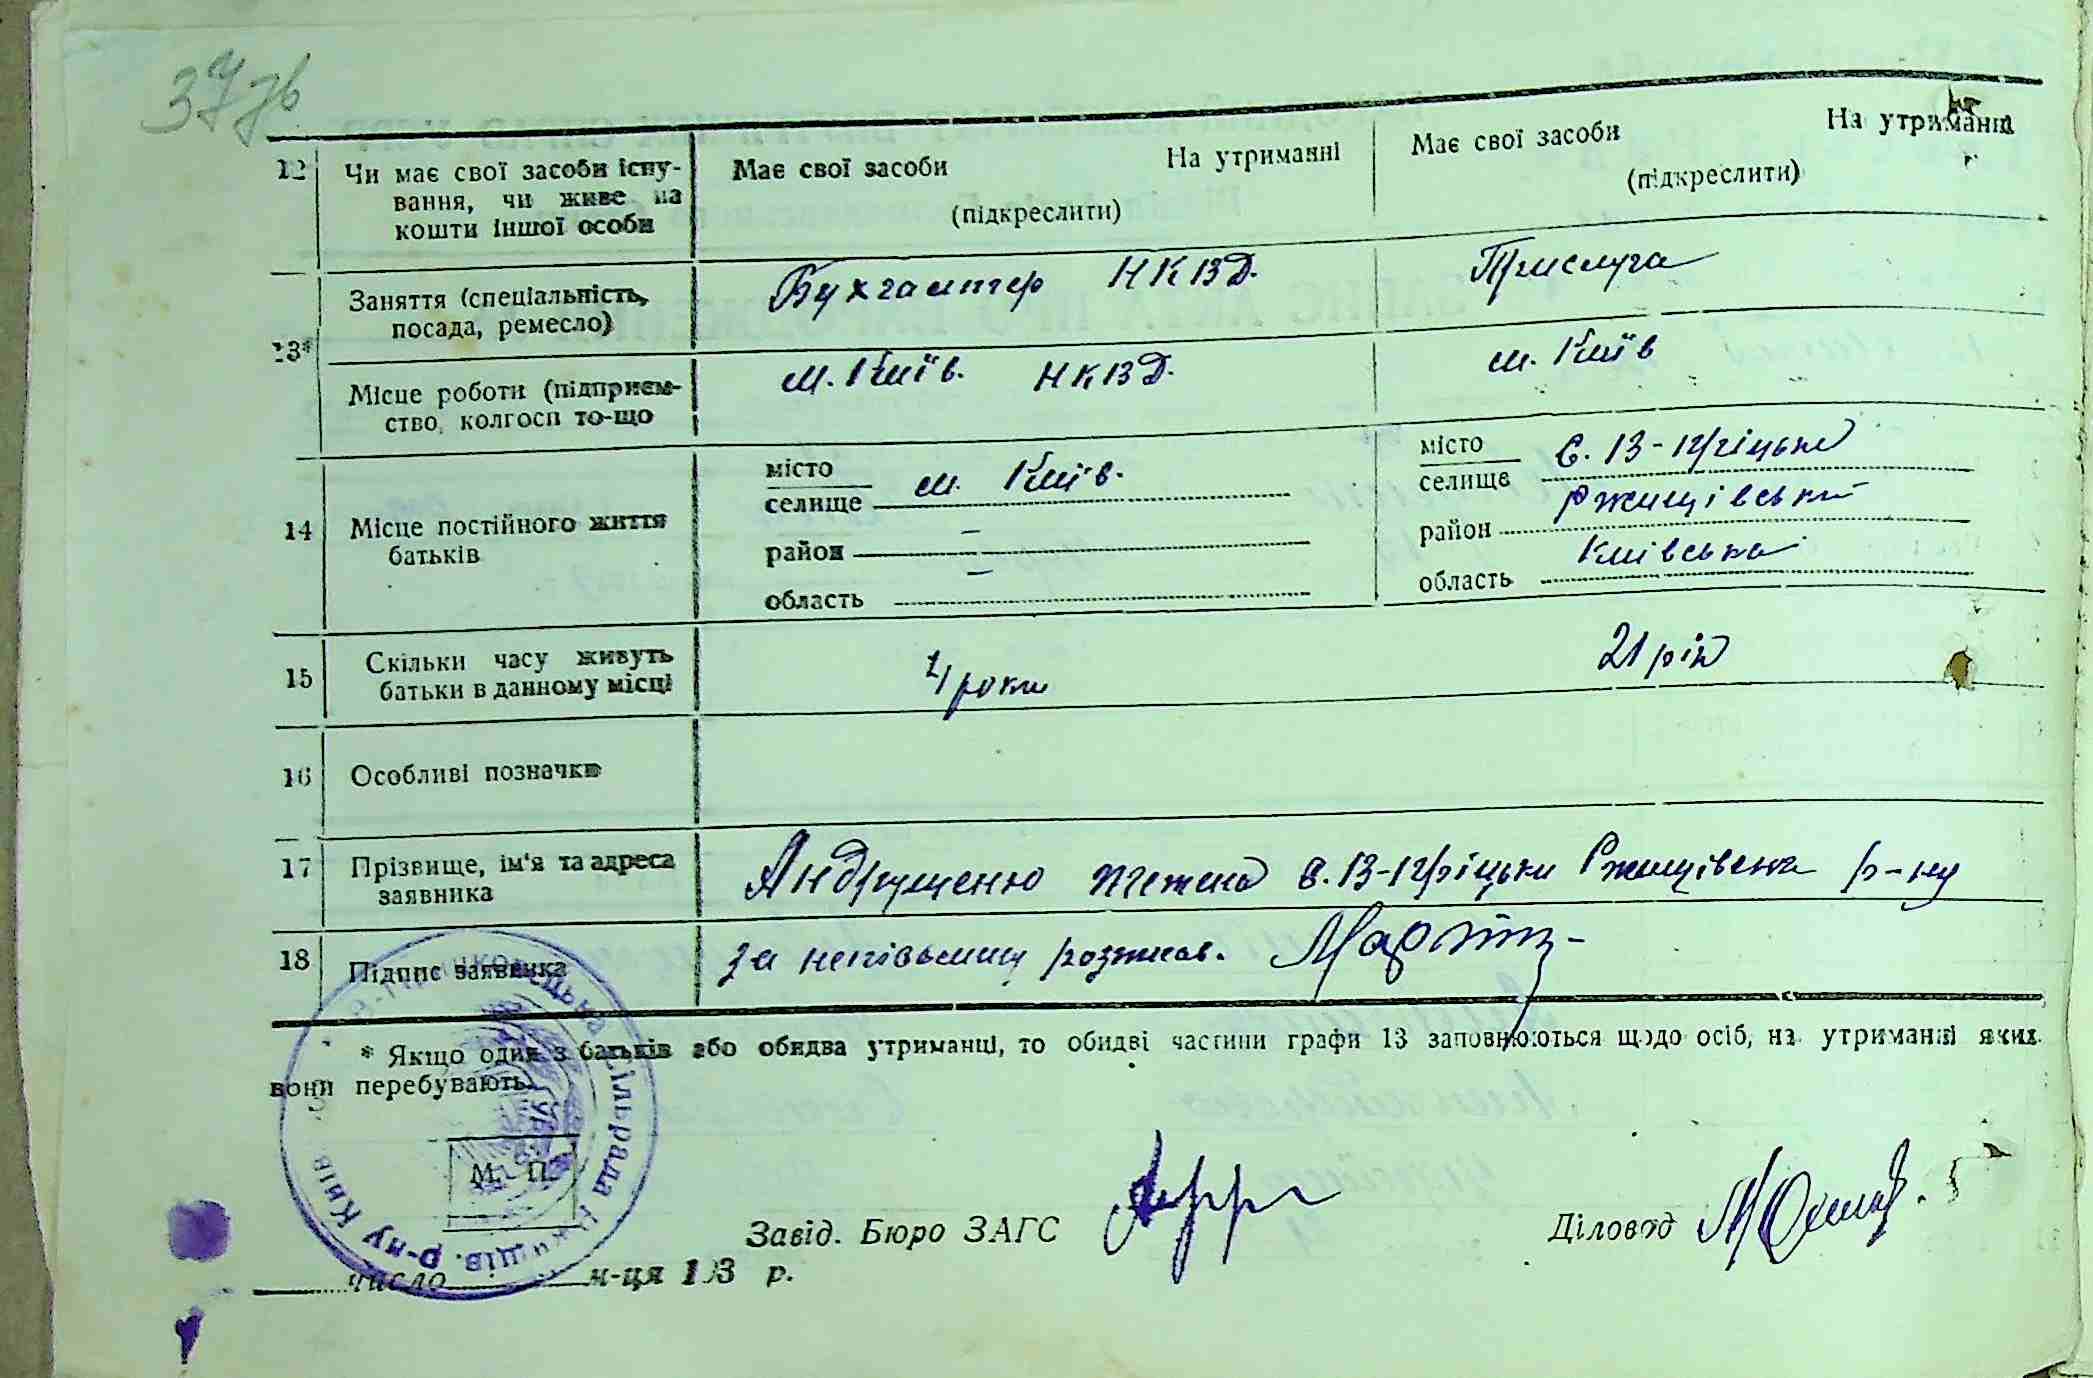 37зв
12 Чи має свої засоби існу-
вання, чи живе на
кошти іншої особи
Має свої засоби На утриманні
(підкреслити)
Має свої засоби На утриманні
(підкреслити)
13*
Заняття (спеціальність,
посада, ремесло)
Бухгалтер НКВД.
Прислуга
Місце роботи (підприєм-
ство, колгосп то-що
м. Київ. НКВД.
м. Київ
14 Місце постійного життя
батьків
місто
селище м. Київ.
район –
область –
місто
селище с. В-Пріцьки
район Ржищівський
область Київська
15 Скільки часу живуть
батьки в данному місці
4 роки
21 рік
16 Особливі позначки
17 Прізвище, ім'я та адреса
заявника
Андрущенко с. В-Пріцьки Ржищівська р-ну
18 Підпис заявника
за неписьмену розписав.
* Якщо один з батьків або обидва утриманці, то обидві частини графи 13 заповнюються щодо осіб, на утриманні яких
вони перебувають.
М. П.
Завід. Бюро ЗАГС
Діловод
число м-ця 193 р.
сільрада Ржищів. р-ну Київ